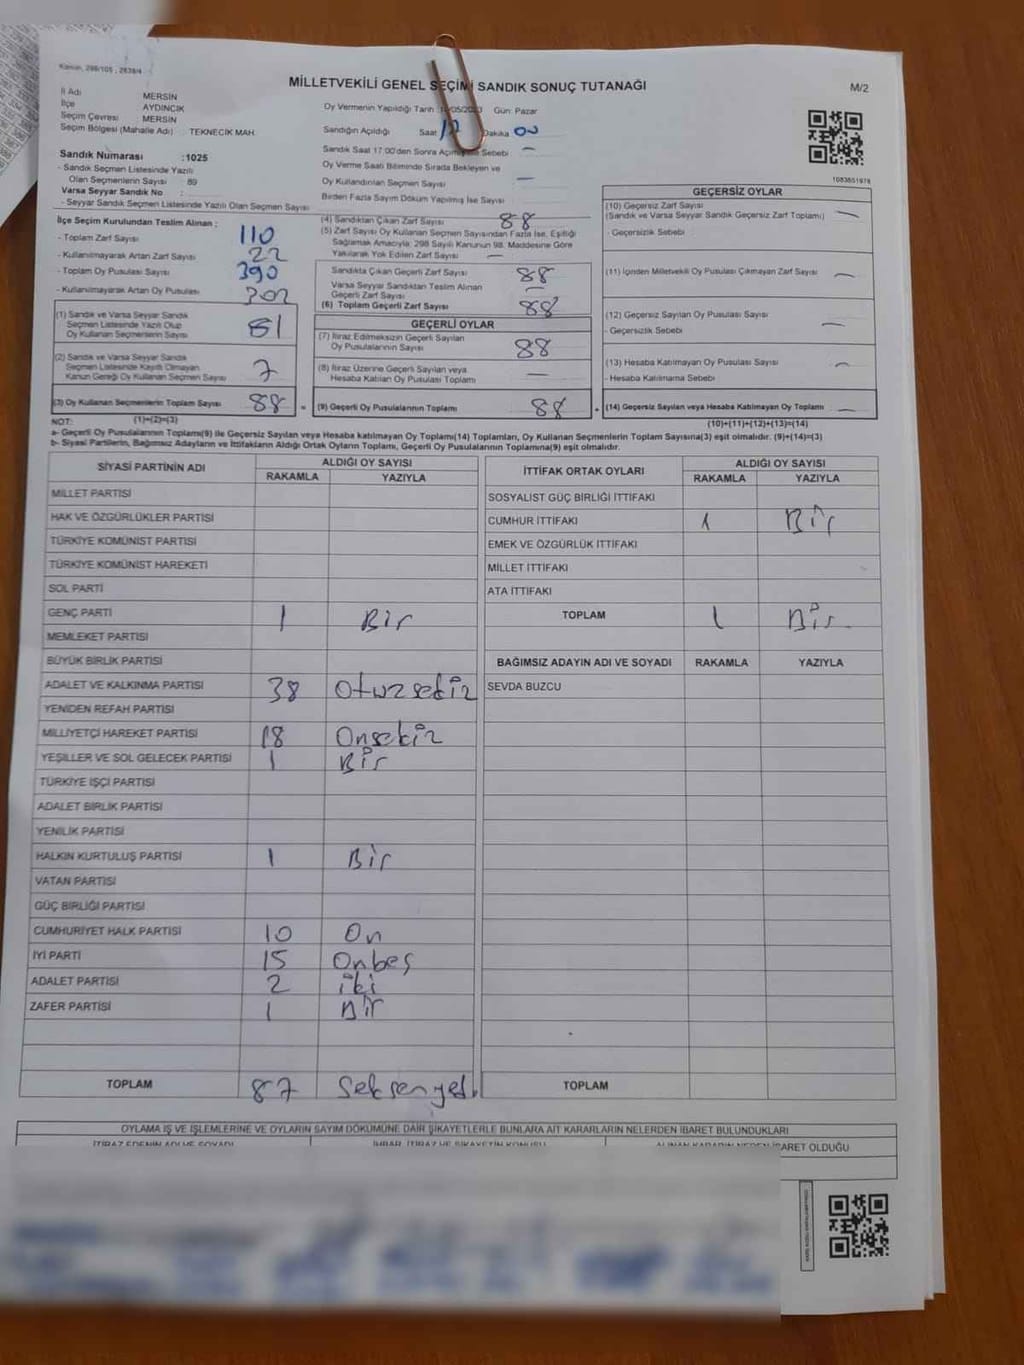 Kanun, 298/105, 2839/4
MİLLETVEKİLİ GENEL SEÇİMİ SANDIK SONUÇ TUTANAĞI
M/2
İl Adı MERSİN
İlçe AYDINCIK
Seçim Çevresi MERSİN
Seçim Bölgesi (Mahalle Adı) : TEKNECİK MAH.
Oy Vermenin Yapıldığı Tarih /05/2023 Gün: Pazar
Sandığın Açıldığı Saat 17 Dakika 00
Sandık Saat 17:00'den Sonra Sebebi -
Oy Verme Saati Bitiminde Sırada Bekleyen ve
Oy Kullandırılan Seçmen Sayısı -
Birden Fazla Sayım Döküm Yapılmış İse Sayısı
Sandık Numarası :1025
- Sandık Seçmen Listesinde Yazılı
Olan Seçmenlerin Sayısı : 89
Varsa Seyyar Sandık No :
- Seyyar Sandık Seçmen Listesinde Yazılı Olan Seçmen Sayısı
1083851978
İlçe Seçim Kurulundan Teslim Alınan :
- Toplam Zarf Sayısı 110
- Kullanılmayarak Artan Zarf Sayısı 22
- Toplam Oy Pusulası Sayısı 390
- Kullanılmayarak Artan Oy Pusulası 302
(1) Sandık ve Varsa Seyyar Sandık
Seçmen Listesinde Yazılı Olup
Oy Kullanan Seçmenlerin Sayısı 81
(2) Sandık ve Varsa Seyyar Sandık
Seçmen Listesinde Kayıtlı Olmayan
Kanun Gereği Oy Kullanan Seçmen Sayısı 7
(3) Oy Kullanan Seçmenlerin Toplam Sayısı 88
(1)+(2)=(3)
(4) Sandıktan Çıkan Zarf Sayısı 88
(5) Zarf Sayısı Oy Kullanan Seçmen Sayısından Fazla İse, Eşitliği
Sağlamak Amacıyla, 298 Sayılı Kanunun 98. Maddesine Göre
Yakılarak Yok Edilen Zarf Sayısı -
Sandıkta Çıkan Geçerli Zarf Sayısı 88
Varsa Seyyar Sandıktan Teslim Alınan
Geçerli Zarf Sayısı -
(6) Toplam Geçerli Zarf Sayısı 88
GEÇERLİ OYLAR
(7) İtiraz Edilmeksizin Geçerli Sayılan
Oy Pusulalarının Sayısı 88
(8) İtiraz Üzerine Geçerli Sayılan veya
Hesaba Katılan Oy Pusulası Toplamı -
= (9) Geçerli Oy Pusulalarının Toplamı 88
GEÇERSİZ OYLAR
(10) Geçersiz Zarf Sayısı
(Sandık ve Varsa Seyyar Sandık Geçersiz Zarf Toplamı) -
- Geçersizlik Sebebi :
(11) İçinden Milletvekili Oy Pusulası Çıkmayan Zarf Sayısı -
(12) Geçersiz Sayılan Oy Pusulası Sayısı -
- Geçersizlik Sebebi
(13) Hesaba Katılmayan Oy Pusulası Sayısı -
- Hesaba Katılmama Sebebi
+ (14) Geçersiz Sayılan veya Hesaba Katılmayan Oy Toplamı -
(10)+(11)+(12)+(13)=(14)
NOT:
a- Geçerli Oy Pusulalarının Toplamı(9) ile Geçersiz Sayılan veya Hesaba katılmayan Oy Toplamı(14) Toplamları, Oy Kullanan Seçmenlerin Toplam Sayısına(3) eşit olmalıdır. (9)+(14)=(3)
b- Siyasi Partilerin, Bağımsız Adayların ve İttifakların Aldığı Ortak Oyların Toplamı, Geçerli Oy Pusulalarının Toplamına(9) eşit olmalıdır.
SİYASİ PARTİNİN ADI ALDIĞI OY SAYISI
RAKAMLA YAZIYLA
MİLLET PARTİSİ
HAK VE ÖZGÜRLÜKLER PARTİSİ
TÜRKİYE KOMÜNİST PARTİSİ
TÜRKİYE KOMÜNİST HAREKETİ
SOL PARTİ
GENÇ PARTİ 1 Bir
MEMLEKET PARTİSİ
BÜYÜK BİRLİK PARTİSİ
ADALET VE KALKINMA PARTİSİ 38 Otuzsekiz
YENİDEN REFAH PARTİSİ
MİLLİYETÇİ HAREKET PARTİSİ 18 Onsekiz
YEŞİLLER VE SOL GELECEK PARTİSİ 1 Bir
TÜRKİYE İŞÇİ PARTİSİ
ADALET BİRLİK PARTİSİ
YENİLİK PARTİSİ
HALKIN KURTULUŞ PARTİSİ 1 Bir
VATAN PARTİSİ
GÜÇ BİRLİĞİ PARTİSİ
CUMHURİYET HALK PARTİSİ 10 On
İYİ PARTİ 15 Onbeş
ADALET PARTİSİ 2 iki
ZAFER PARTİSİ 1 Bir
TOPLAM 87 Seksenyedi
İTTİFAK ORTAK OYLARI ALDIĞI OY SAYISI
RAKAMLA YAZIYLA
SOSYALİST GÜÇ BİRLİĞİ İTTİFAKI
CUMHUR İTTİFAKI 1 Bir
EMEK VE ÖZGÜRLÜK İTTİFAKI
MİLLET İTTİFAKI
ATA İTTİFAKI
TOPLAM 1 Bir
BAĞIMSIZ ADAYIN ADI VE SOYADI RAKAMLA YAZIYLA
SEVDA BUZCU
TOPLAM
OYLAMA İŞ VE İŞLEMLERİNE VE OYLARIN SAYIM DÖKÜMÜNE DAİR ŞİKAYETLERLE BUNLARA AİT KARARLARIN NELERDEN İBARET BULUNDUKLARI
İTİRAZ EDENİN ADI VE SOYADI İHBAR, İTİRAZ VE ŞİKAYETİN KONUSU ALINAN KARARIN NEDEN İBARET OLDUĞU